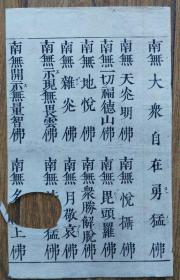 南無大衆自在勇猛佛
南無天炎明佛 南無悅攝佛
南無一切福德山佛 南無毘頭羅佛
南無地悅佛 南無衆勝解脫佛
南無雜炎佛 南無月敬哀佛
南無示現無畏雲佛 南無 猛佛
南無開示無量智佛 南無 上佛